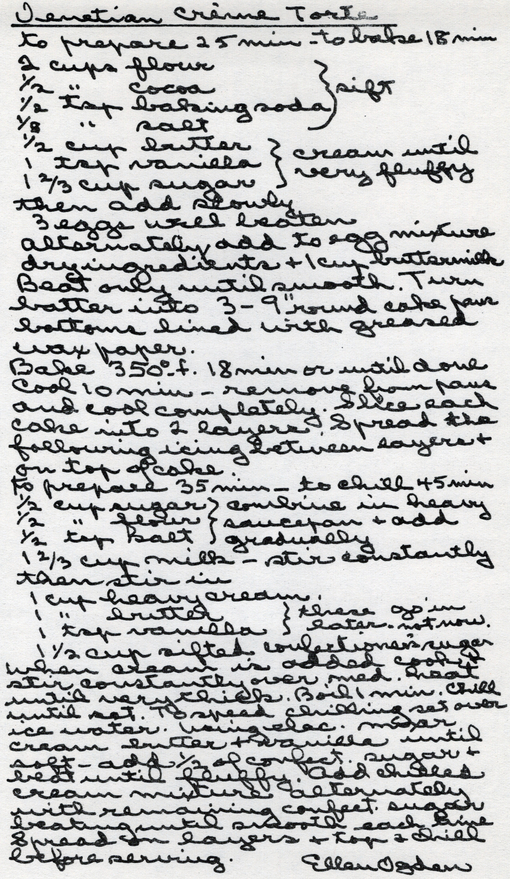 Venetian Crème Torte
to prepare 25 min - to bake 18 min
2 cups flour
1/2 " cocoa
1/2 tsp baking soda } sift
1/8 " salt
1/2 cup butter
1 tsp vanilla } cream until
1 2/3 cup sugar very fluffy
then add slowly
3 eggs well beaten
alternately add to egg mixture
dry ingredients + 1 cup buttermilk
Beat only until smooth. Turn
batter into 3 - 9" round cake pans
bottoms lined with greased
wax paper.
Bake 350° f. 18 min or until done
Cool 10 min - remove from pans
and cool completely. Slice each
cake into 2 layers. Spread the
following icing between layers +
on top of cake
to prepare 35 min - to chill 45 min
1/2 cup sugar } combine in heavy
1/2 " flour } saucepan + add
1/2 tsp salt } gradually
1 2/3 cup milk - stir constantly
then stir in
1 cup heavy cream.
1 " butter } these go in
1 tsp vanilla } later. not now.
1 1/2 cup sifted confectioner's sugar
when cream is added cook it
stir constantly over med. heat
until very thick. Boil 1 min. Chill
until set. To speed chilling set over
ice water. Using elec. mixer
cream butter + vanilla until
soft - add 1/2 of confect. sugar +
beat until fluffy. Add chilled
cream mixture alternately
with remaining confect. sugar
beating until smooth each time
Spread on layers + top & chill
before serving. Ellen Ogden